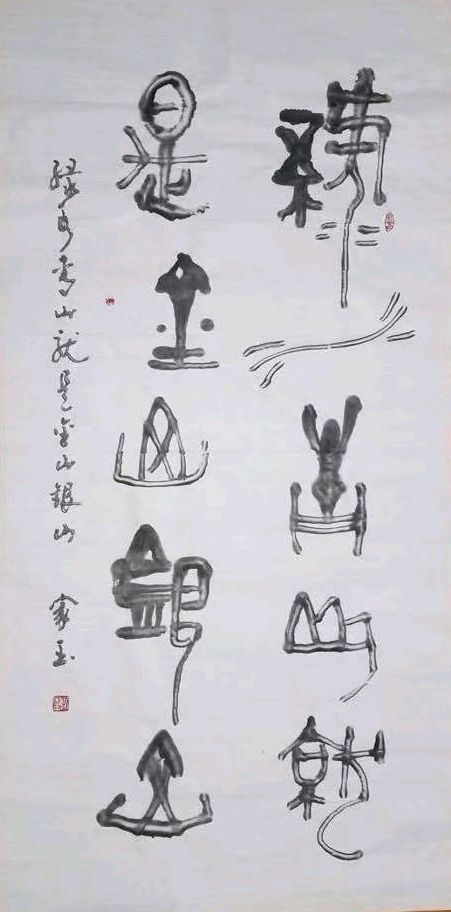 綠水青山就
是金山銀山
绿水青山就是金山銀山 家玉